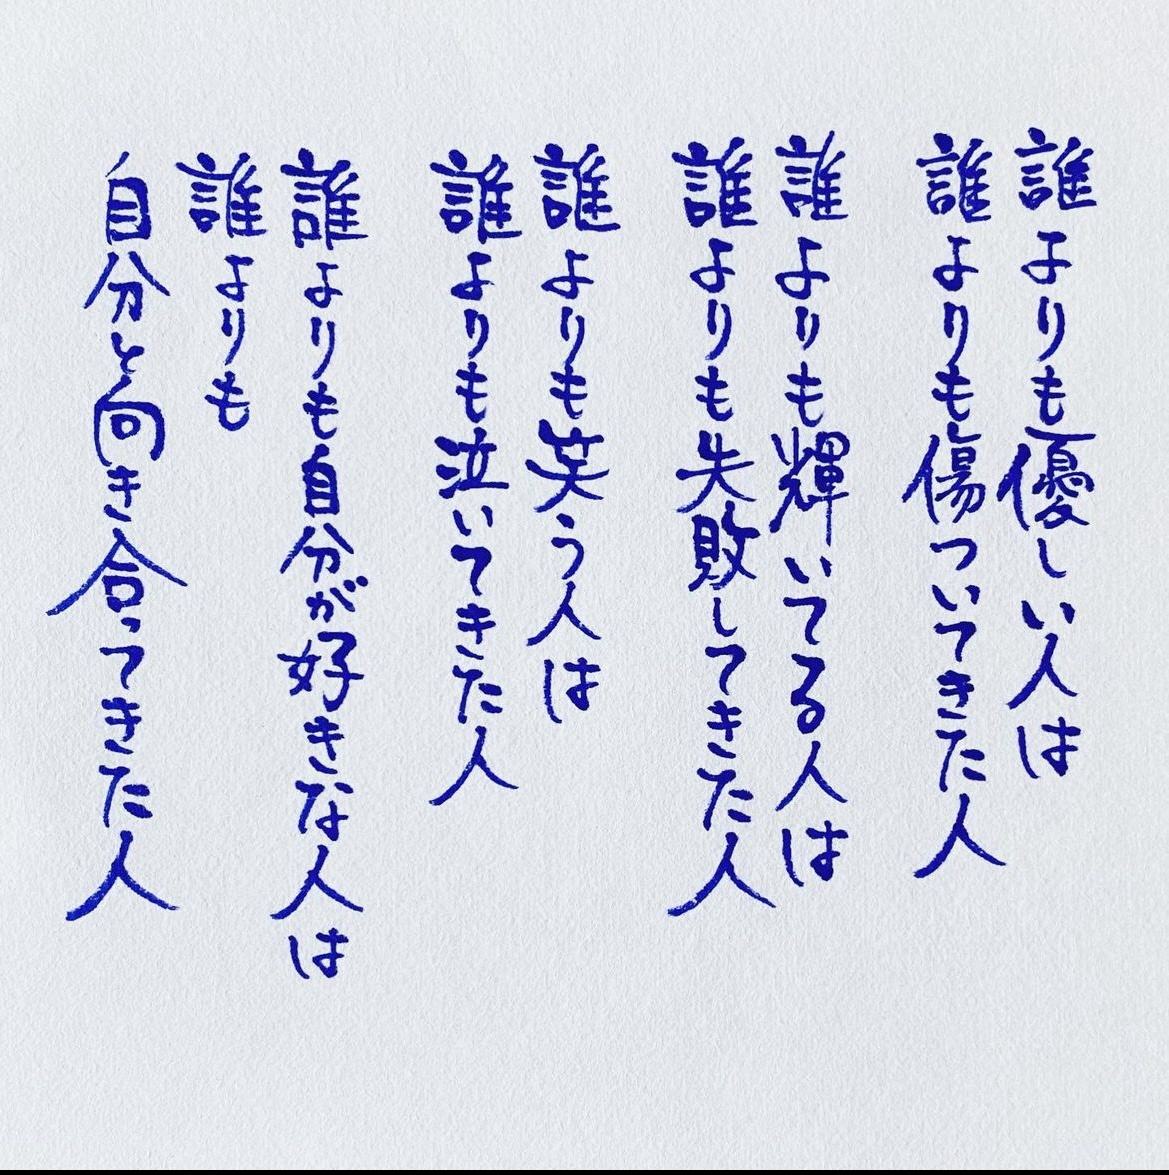 誰よりも優しい人は
誰よりも傷ついてきた人
誰よりも輝いてる人は
誰よりも失敗してきた人
誰よりも笑う人は
誰よりも泣いてきた人
誰よりも自分が好きな人は
誰よりも
自分と向き合ってきた人